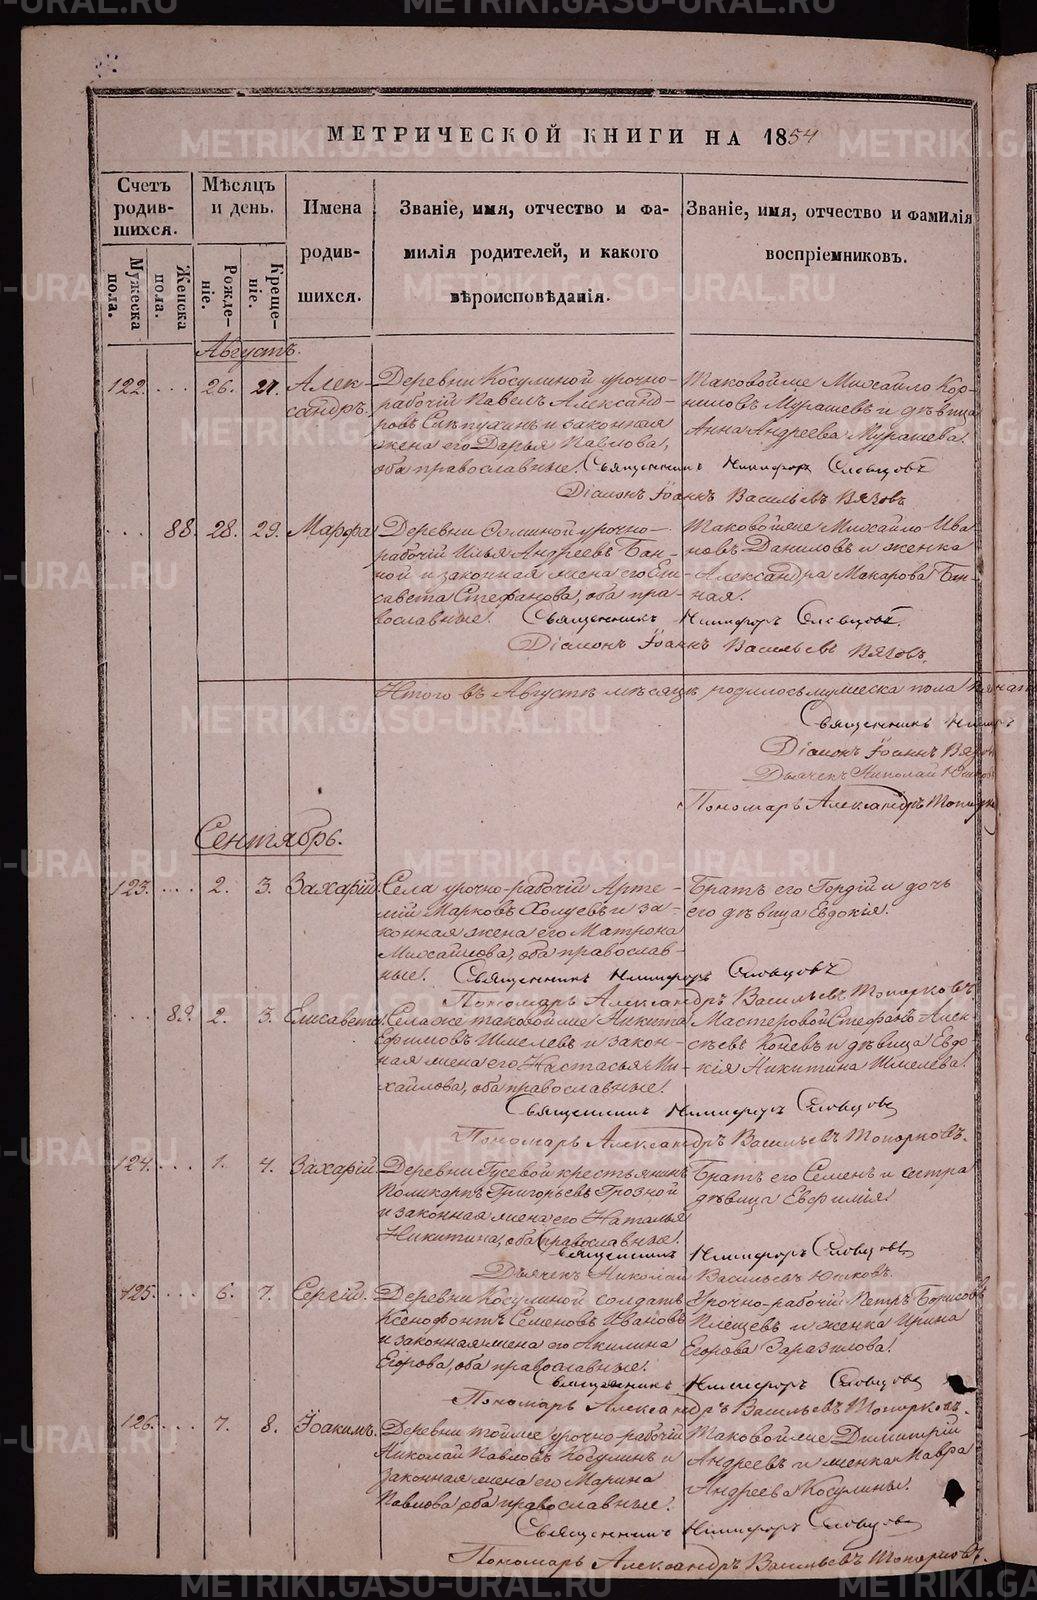 МЕТРИЧЕСКОЙ КНИГИ НА 1854
Счетъ родив- шихся.
Мѣсяцъ и день.
Имена родив- шихся.
Званіе, имя, отчество и фа-
милія родителей, и какого
вѣроисповѣданія.
Званіе, имя, отчество и фамилія
воспріемниковъ.
Мужеска пола.
Женска пола.
Рожде- ніе.
Креще- ніе.
Августъ.
122. ... 26. 27. Алек- сандръ.
Деревни Косулиной урочно-
рабочій Павелъ Александ-
ровъ Слѣпухинъ и законная
жена его Дарья Павлова,
оба православные.
Таковойже Михайло Кор-
ниловъ Мурашевъ и дѣвица
Анна Андреева Мурашева.
Священникъ Никифоръ Словцовъ
Діаконъ Іоаннъ Васильевъ Вязовъ
... 88. 28. 29. Марфа
Деревни урочно-
рабочій Илья Андреевъ Бан-
ной и законная жена его Ели-
савета Стефанова, оба пра-
вославные.
Таковойже Михайло Ива-
новъ Даниловъ и женка
Александра Макарова Бан-
ная.
Священникъ Никифоръ Словцовъ.
Діаконъ Іоаннъ Васильевъ Вязовъ.
Итого въ Августѣ мѣсяцѣ родилось мужеска пола
Священникъ Никиф
Діаконъ Іоаннъ Вязов
Дьячекъ Николай Юшков
Пономарь Александръ Топорк
Сентябрь.
123. ... 2. 3. Захарій
Села урочно-рабочій Арте-
мій Марковъ Холуевъ и за-
конная жена его Матрона
Михайлова, оба православ-
ные.
Братъ его Гордій и дочь
его дѣвица Евдокія.
Священникъ Никифоръ Словцовъ
Пономарь Александръ Васильевъ Топорковъ.
... 89. 2. 3. Елисавета
Селаже таковойже Никита
Ефимовъ Шмелевъ и закон-
ная жена его Настасья Ми-
хайлова, оба православные.
Мастеровой Стефанъ Алек-
сѣевъ Коневъ и дѣвица Евдо-
кія Никитина Шмелева.
Священникъ Никифоръ Словцовъ
Пономарь Александръ Васильевъ Топорковъ.
124. ... 1. 4. Захарій
Деревни Гусевой крестьянинъ
Поликарпъ Григорьевъ Грозной
и законная жена его Наталья
Никитина, оба православные.
Братъ его Семенъ и сестра
дѣвица Евфимія.
Священникъ Никифоръ Словцовъ
Дьячекъ Николай Васильевъ Юшковъ.
125. ... 6. 7. Сергій.
Деревни Косулиной солдатъ
Ксенофонтъ Семеновъ Ивановъ
и законная жена его Акилина
Егорова, оба православные.
Урочно-рабочій Петръ Борисовъ
Плещевъ и женка Ирина
Егорова Заразилова.
Священникъ Никифоръ Словцовъ
Пономарь Александръ Васильевъ Топорковъ.
126. ... 7. 8. Іоакимъ.
Деревни тойже урочно-рабочій
Николай Павловъ Косулинъ и
законная жена его Марина
Павлова, оба православные.
Таковойже Димитрій
Андреевъ и женка Мавра
Андреева Косулины.
Священникъ Никифоръ Словцовъ
Пономарь Александръ Васильевъ Топорковъ.
METRIKI.GASO-URAL.RU